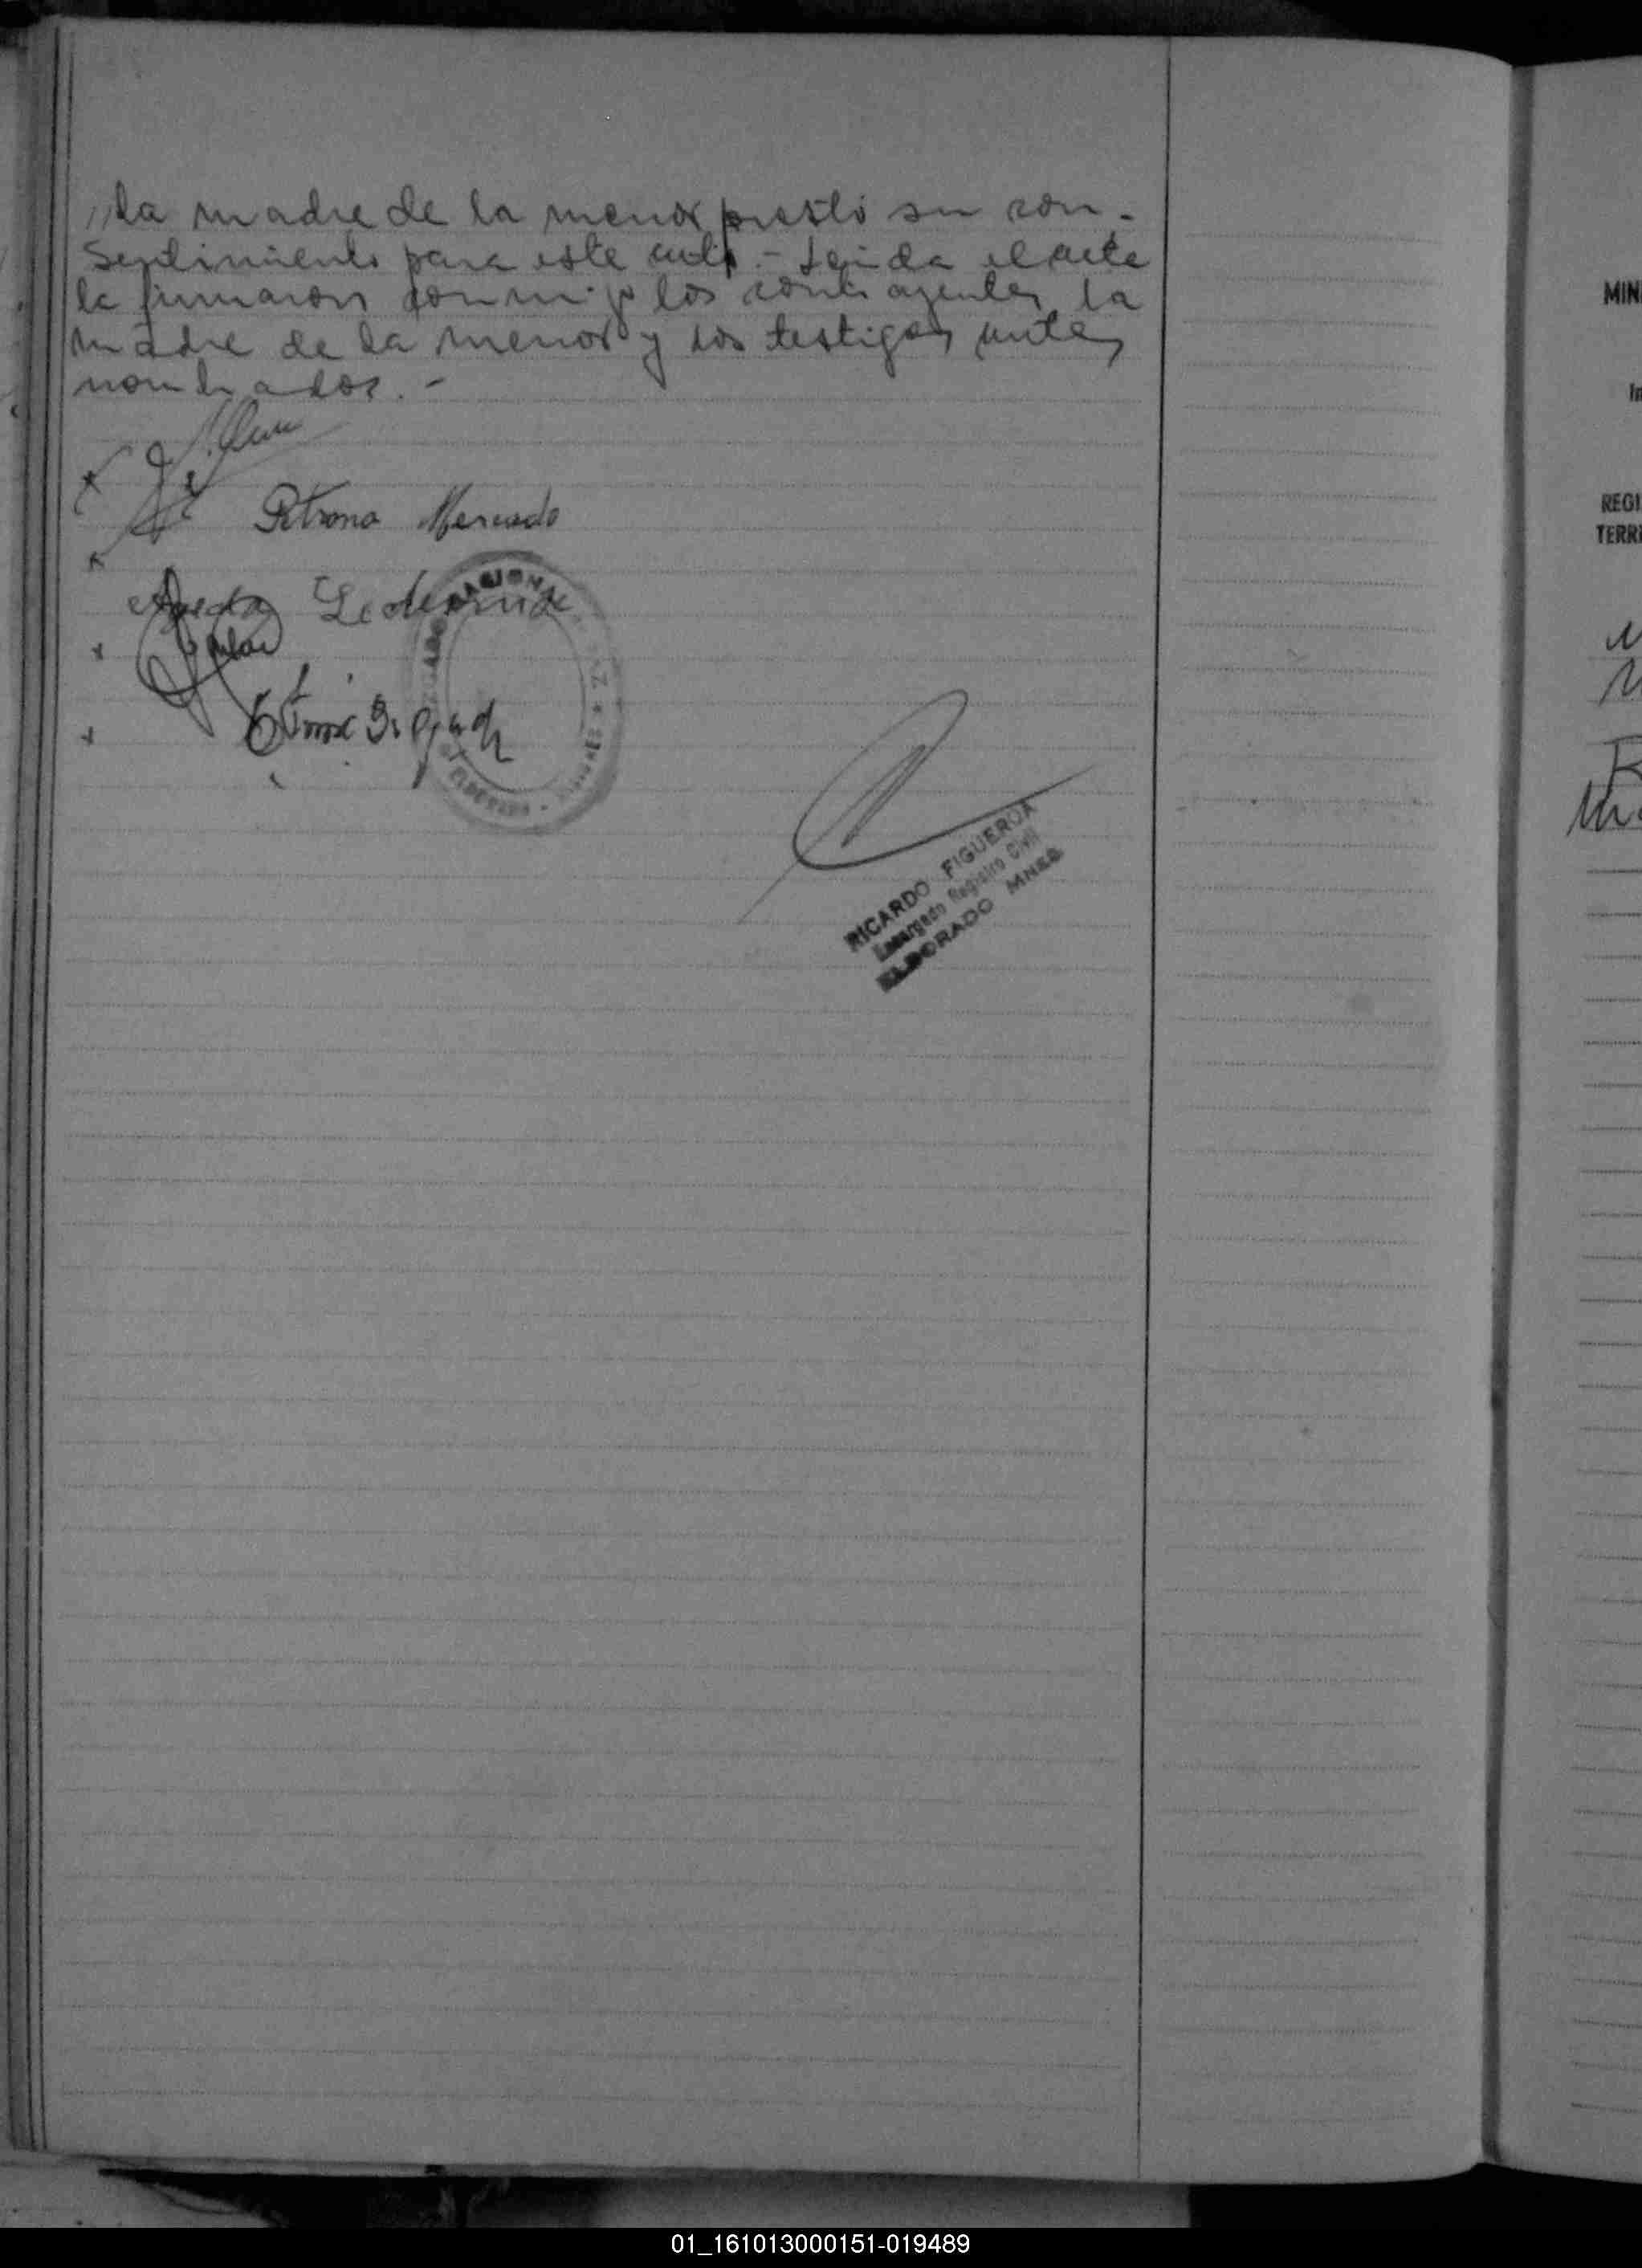 //la madre de la menor prestó su con-
sentimiento para este acto.- Leida el acta
la firmaron conmigo los contrayentes, la
madre de la menor y los testigos antes
nombrados.-
Petrona Mercado
Ledesma
JUZGADO NACIONAL PAZ
ELDORADO
RICARDO FIGUEROA
Encargado Registro Civil
ELDORADO MNES.
MIN
REGI
TERRI
01_161013000151-019489